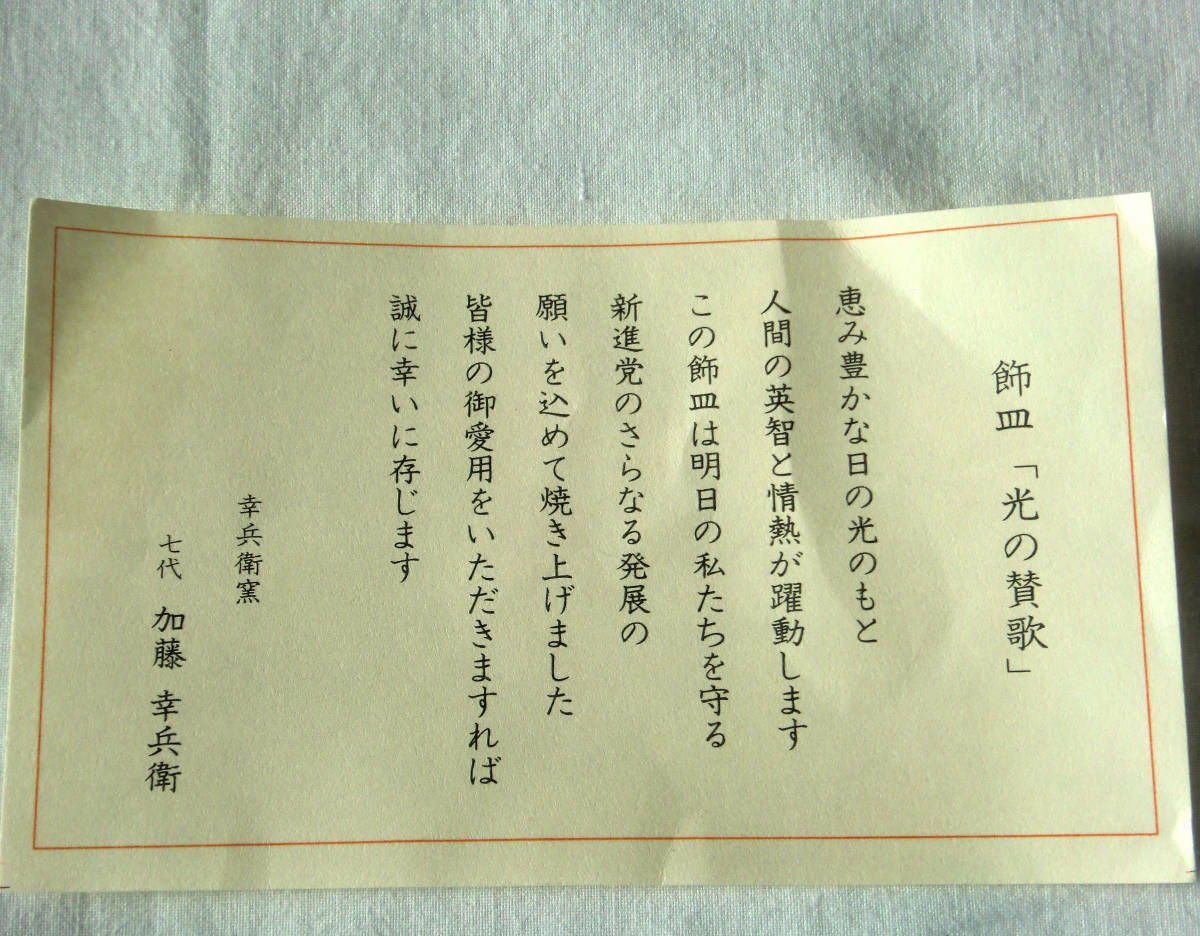 飾皿「光の賛歌」
恵み豊かな日の光のもと
人間の英智と情熱が躍動します
この飾皿は明日の私たちを守る
新進党のさらなる発展の
願いを込めて焼き上げました
皆様の御愛用をいただきますれば
誠に幸いに存じます
幸兵衛窯
七代 加藤 幸兵衛